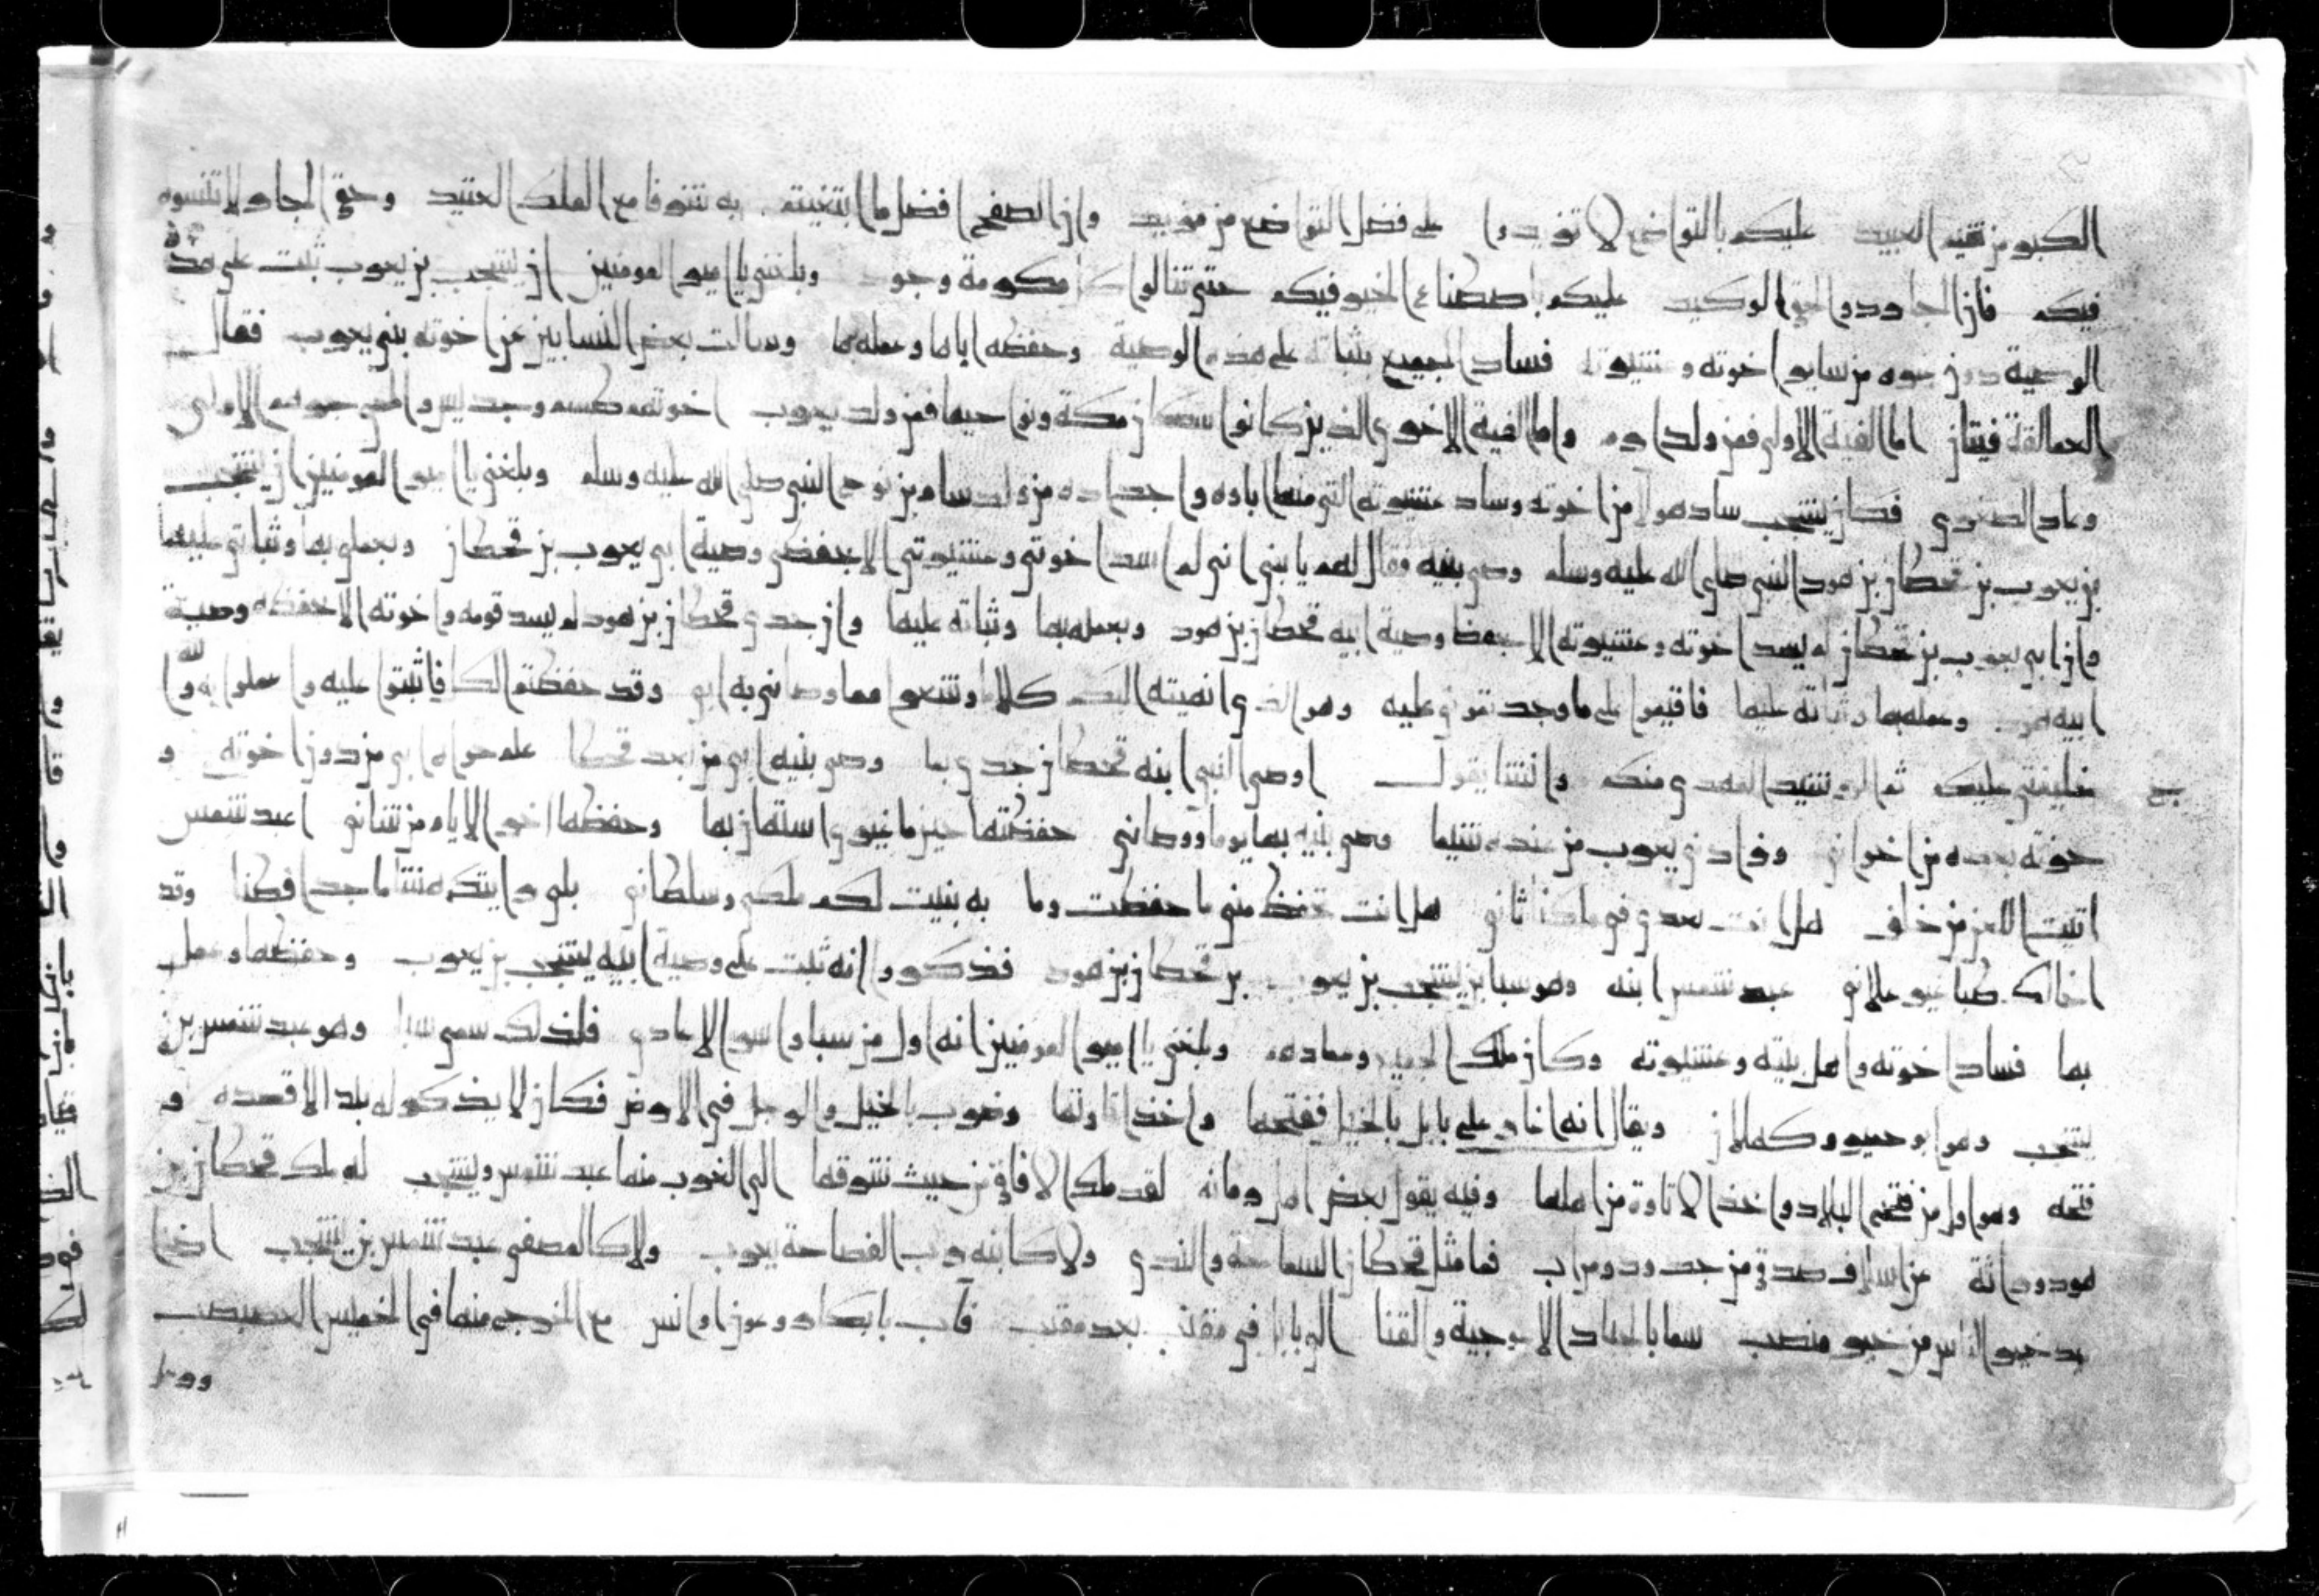 الكبر من شيم العبيد عليكم بالتواضع لا تزيدوا على فضل التواضع من مزيد وان الصفح افضل ما ابتغيتم به شرفا مع الملك العتيد وحق الجار لا تنسوه
فيكم فان الجار ذو الحق الوكيد عليكم باصطناع الخير فيكم حتى تنالوا كل مكرمة وجود وبلغني يا امير المومنين ان يشجب بن يعرب ثبت على هذه
الوصية دون غيره من ساير اخوته وعشيرته فساد الجميع بثباته على هذه الوصية وحفظه اياها وعمله بها وسالت بعض النسابين عن اخوته بني يعرب فقال
العمالقة فيتان اما الفية الاولى فمن ولد ارم واما الفية الاخرى الذين كانوا سكان مكة ونواحيها فمن ولد يعرب اخوتهم طسم وجديس واهم جرهم الاولى
وعاد الصغرى فكان يشجب ساد هولا من اخوته وساد عشيرته التي منها اباوه واجداده من ولد سام بن نوح النبي صلى الله عليه وسلم وبلغني يا امير المومنين ان يشجب
بن يعرب بن قحطان بن هود النبي صلى الله عليه وسلم وصى بنيه فقال لهم يا بني اني لم اسد اخوتي وعشيرتي الا بحفظي وصية ابي يعرب بن قحطان وبعملي بها وثباتي عليها
وان ابي يعرب بن قحطان لم يسد اخوته وعشيرته الا بحفظ وصية ابيه قحطان بن هود وبعمله بها وثباته عليها وان جدي قحطان بن هود لم يسد قومه واخوته الا بحفظه وصية
ابيه هود وعمله بها وثباته عليها فاقيموا على ما وجدتموني عليه وهو الذي انهيته اليكم كلاما وشعرا مما وصاني به ابي وقد حفظتم ذلك فاثبتوا عليه واعملوا به والله
خليفتي عليكم ثم الرشيد المهدي منكم وانشا يقول اوصى النبي ابنه قحطان جدي بما وصى بنيه ابي من بعد قحطان علم حواه ابي من دون اخوته و
حزته بعده من اخواني وزادني يعرب من عنده شيما وصى بنيه بها يوما ووصاني حفظتها حين ما غيري استهان بها وحفظها اخرى الايام من شاني اعبد شمس
اتيت العز من خلف هل انت بعدي في ماكنا ثاني هل انت تحفظ مني ما حفظت وما به بنيت لكم ملكي وسلطاني بلى رايتك منشا ماجدا فطنا وقد
اخالك طبا غير علاني عبد شمس ابنه وهو سبا بن يشجب بن يعرب بن قحطان بن هود فذكروا انه ثبت على وصية ابيه يشجب بن يعرب وحفظها وعمل
بها فساد اخوته واهل بيته وعشيرته وكان ملك الجميع ومعاذهم وبلغني يا امير المومنين انه اول من سبا واسر الاعادي فلذلك سمي سبا وهو عبد شمس بن
يشجب وهو ابو حمير وكهلان ويقال انه اغار على بابل بالخيل ففتحها واخذ اتاوتها وضرب بالخيل والرجل في الارض فكان لا يذكر له بلد الا قصده و
فتحه وهو اول من فتح البلاد واخذ الاتاوة من اهلها وفيه يقول بعض اهل زمانه لقد ملك الافاق من حيث شرقها الى الغرب منها عبد شمس ويشجب له ملك قحطان بن
هود وراثة عن اسلاف صدق من جدود ومن اب فما مثل قحطان السماحة والندى ولا كابنه رب الفصاحة يعرب ولا كالمصفى عبد شمس بن يشجب اخنا
بعد خير الناس من خير منصب سما بالجياد الاعوجية والقنا الى بابل في مقنب بعد مقنب فآب بابكار وعون اوانس مع الخرج منها في الخميس العصبصب